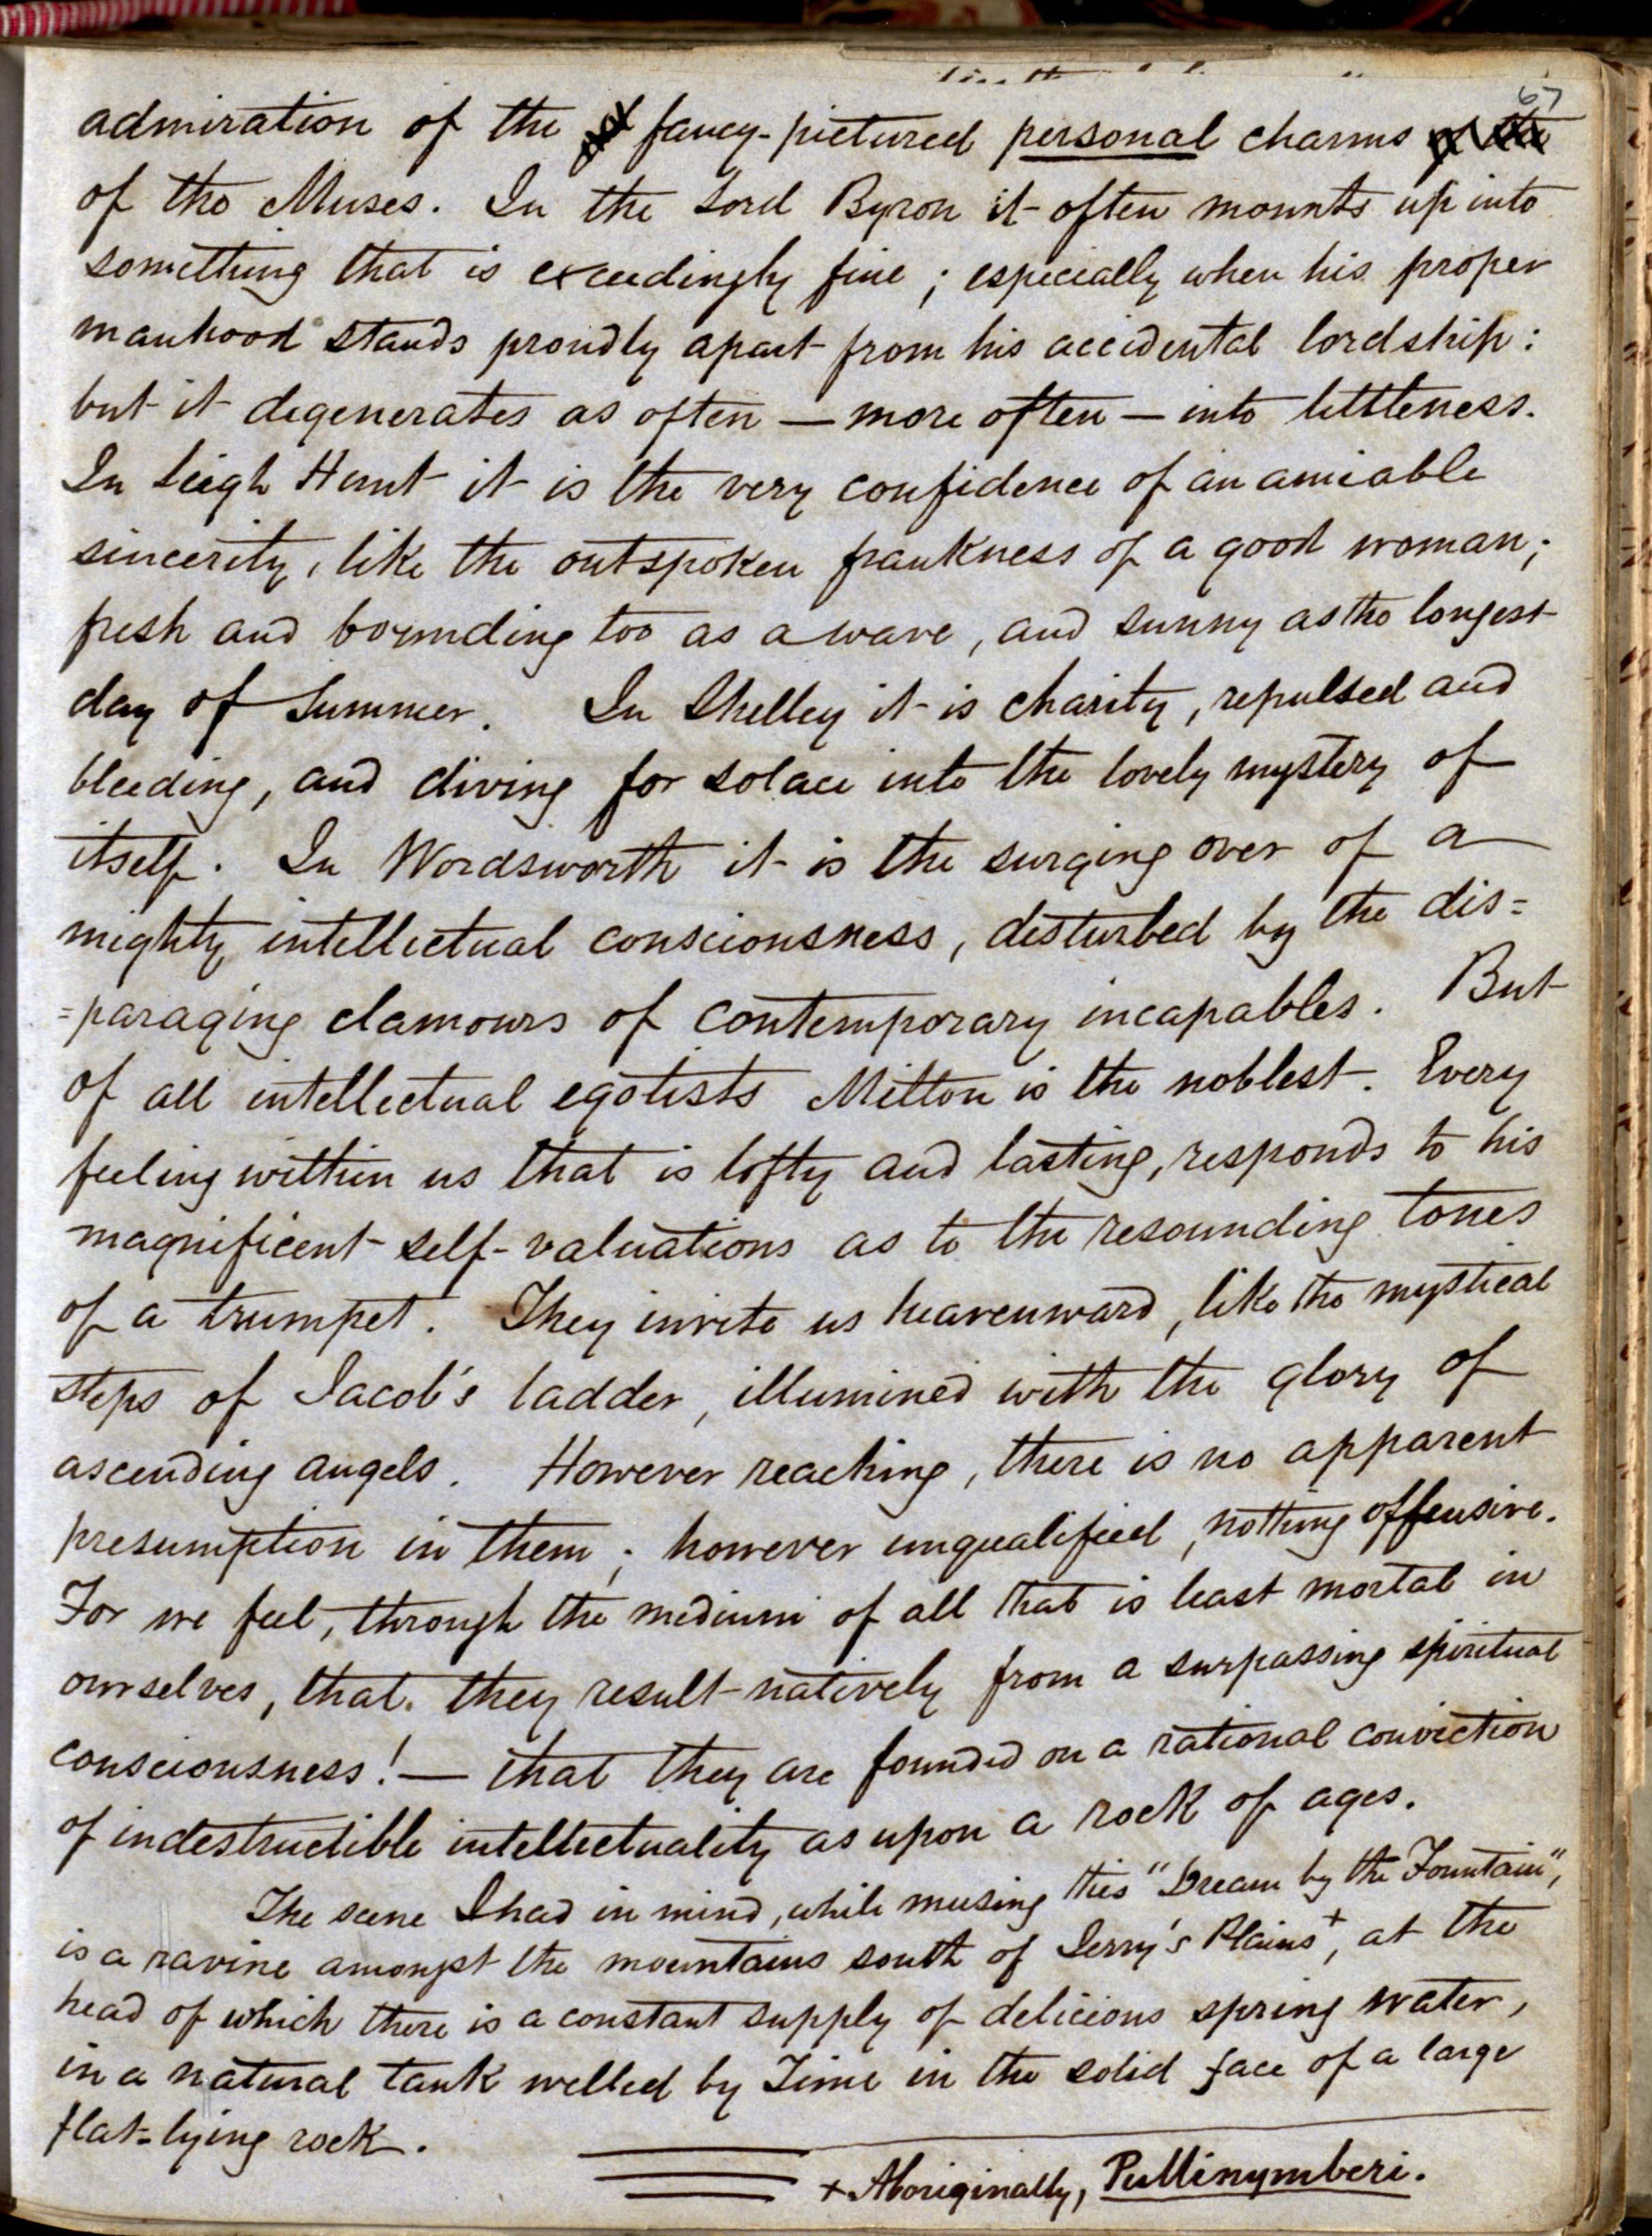 67
admiration of the fancy-pictured personal charms
of the Muses. In the Lord Byron it often mounts up into
something that is exceedingly fine; especially when his proper
manhood stands proudly apart from his accidental lordship:
but it degenerates as often — more often — into littleness.
In Leigh Hunt it is the very confidence of an amiable
sincerity, like the outspoken frankness of a good woman;
fresh and bounding too as a wave, and sunny as the longest
day of Summer. In Shelley it is charity, repulsed and
bleeding, and diving for solace into the lovely mystery of
itself. In Wordsworth it is the surging over of a
mighty intellectual consciousness, disturbed by the dis=
=paraging clamours of contemporary incapables. But
of all intellectual egotists Milton is the noblest. Every
feeling within us that is lofty and lasting, responds to his
magnificent self-valuations as to the resounding tones
of a trumpet. They invite us heavenward, like the mystical
steps of Jacob's ladder, illumined with the glory of
ascending angels. However reaching, there is no apparent
presumption in them; however unqualified, nothing offensive.
For we feel, through the medium of all that is least mortal in
ourselves, that they result natively from a surpassing spiritual
consciousness! — that they are founded on a rational conviction
of indestructible intellectuality as upon a rock of ages.
The scene I had in mind, while musing this "Dream by the Fountain",
is a ravine amongst the mountains south of Jerry's Plains+, at the
head of which there is a constant supply of delicious spring water,
in a natural tank welled by Time in the solid face of a large
flat-lying rock.
+ Aboriginally, Pullinymberi.